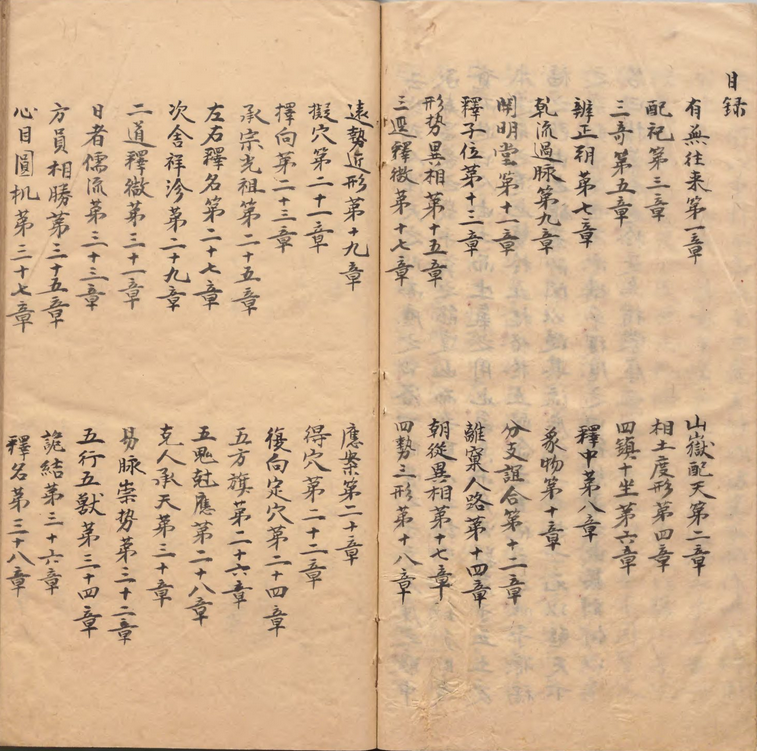 目録
有無往来第一章
山嶽配天第二章
配祀第三章
相土度形第四章
三奇第五章
四鎮十坐第六章
辨正朝第七章
釋中第八章
乾流過脉第九章
象物第十章
開明堂第十一章
分支誼合第十二章
釋子位第十三章
離窠入路第十四章
形勢異相第十五章
朝從異相第十七章
三逕釋微第十七章
四勢三形第十八章
遠勢近形第十九章
應案第二十章
擬穴第二十一章
得穴第二十二章
擇向第二十三章
復向定穴第二十四章
承宗光祖第二十五章
五方旗第二十六章
左右釋名第二十七章
五鬼尅應第二十八章
次舍祥沴第二十九章
克人承天第三十章
二道釋微第三十一章
易脉崇勢第三十二章
日者儒流第三十三章
五行五獸第三十四章
方員相勝第三十五章
詭結第三十六章
心目圓机第三十七章
釋名第三十八章